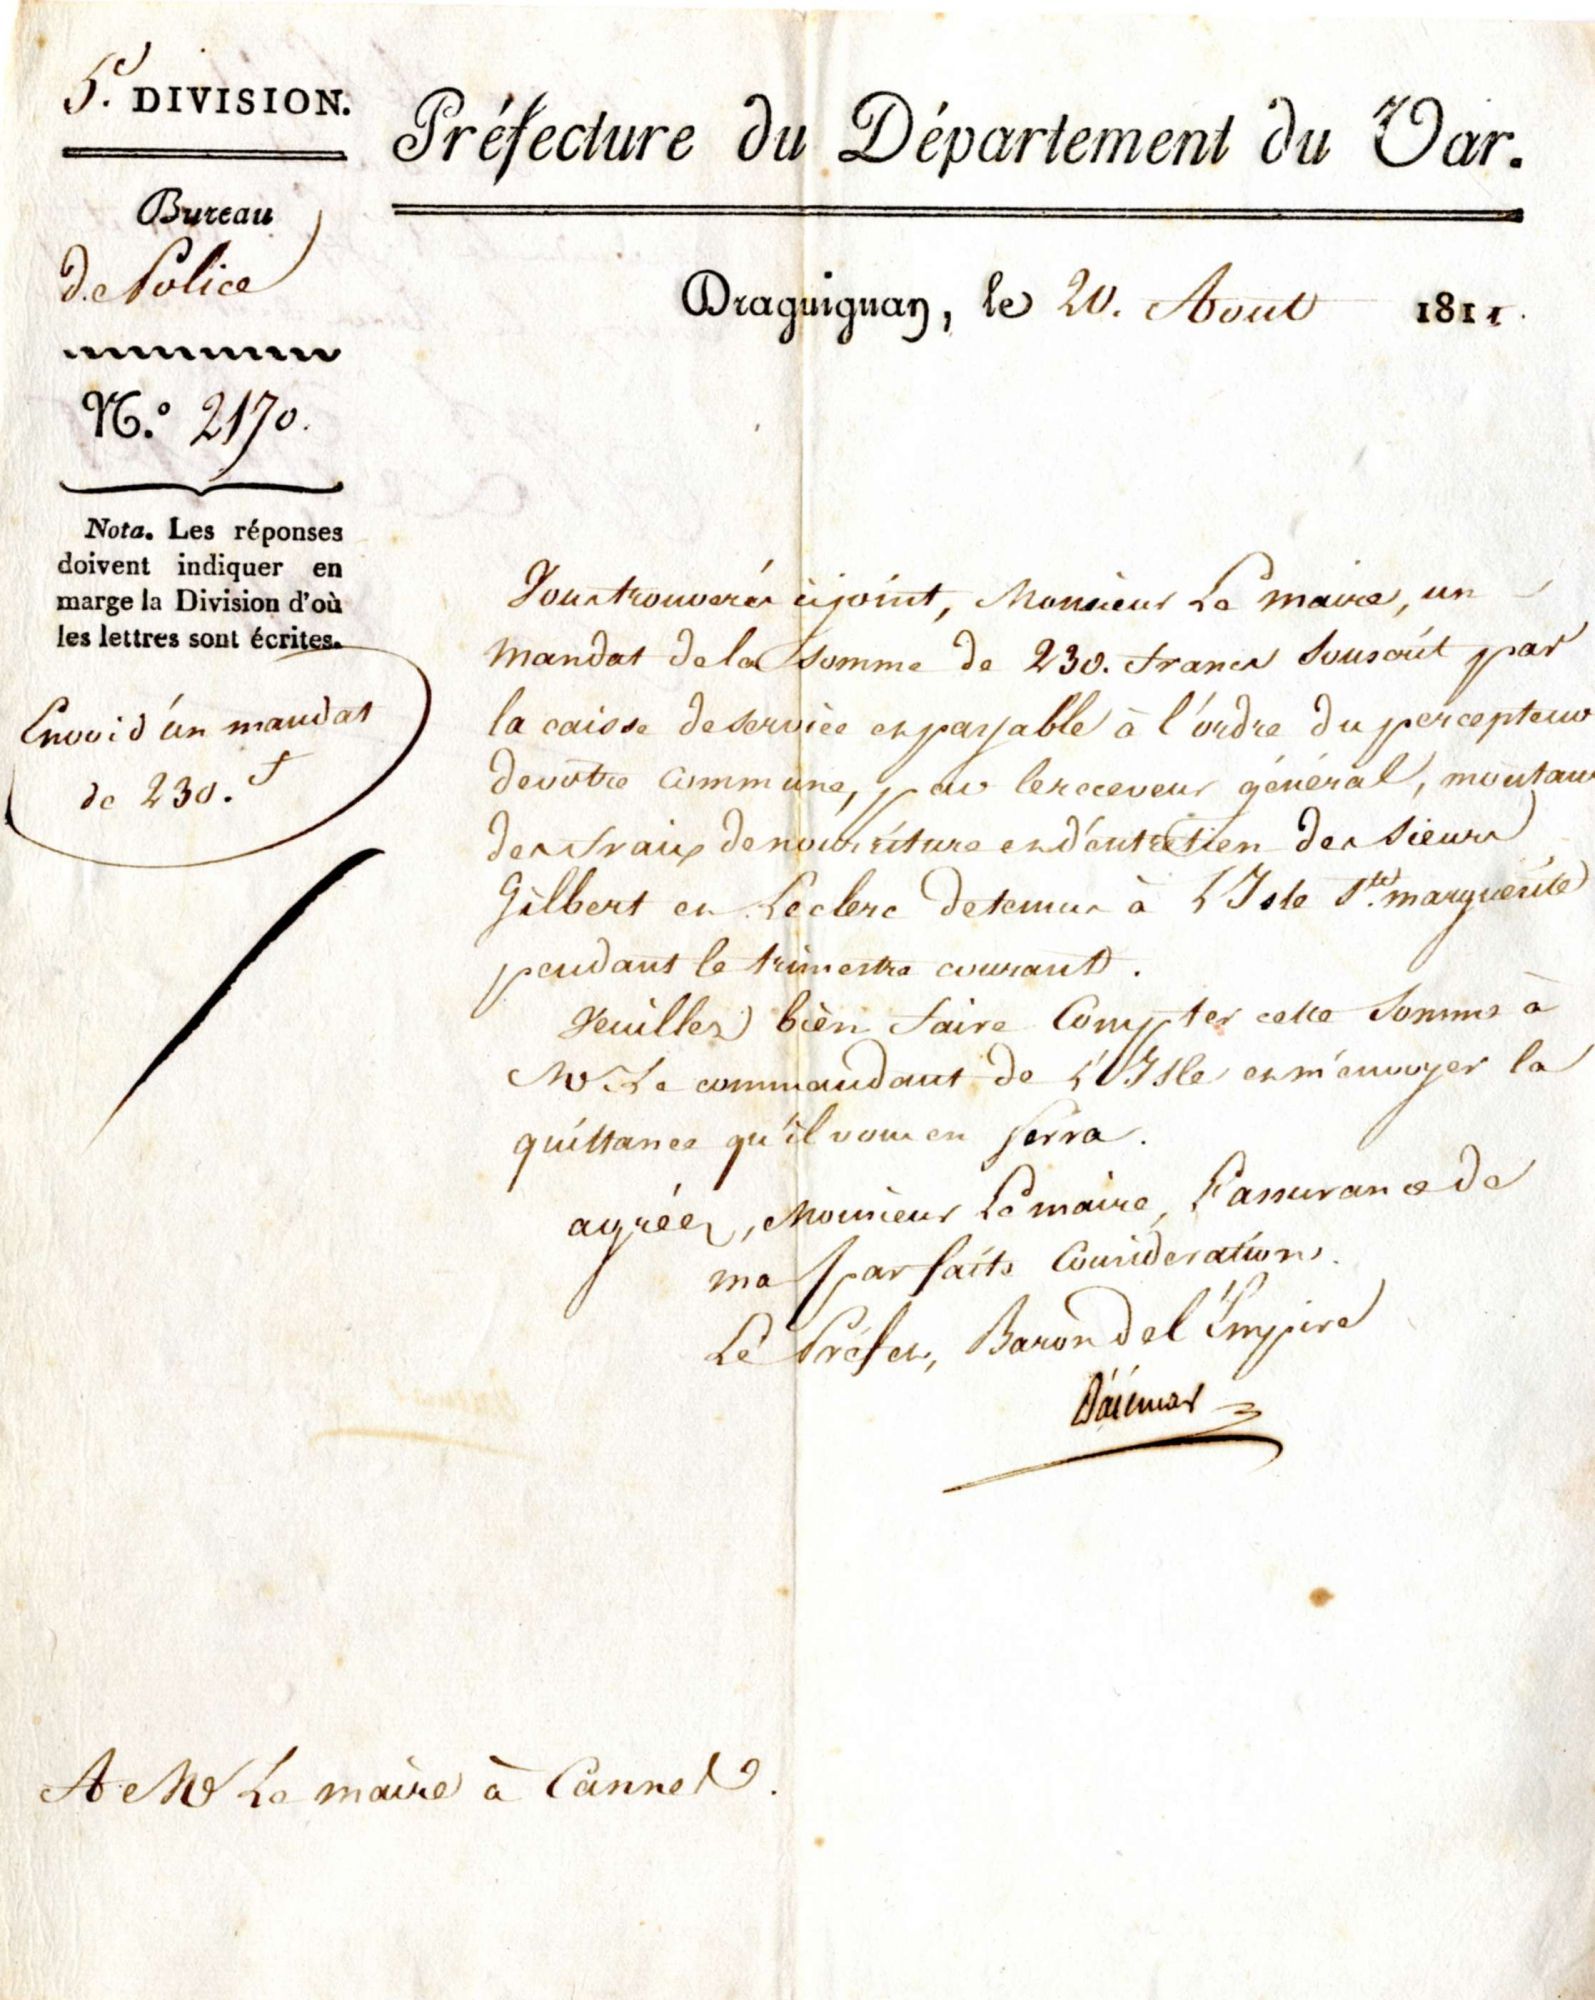 5e. DIVISION.
Bureau
de Police
N.° 2170.
Nota. Les réponses
doivent indiquer en
marge la Division d'où
les lettres sont écrites.
Envoi d'un mandat
de 230. f
Préfecture du Département du Var.
Draguignan, le 20. Aout 1811.
Vous trouverés cijoint, Monsieur Le maire, un
mandat de la somme de 230. francs souscrit par
la caisse de service et payable à l'ordre du percepteur
de votre commune, par le receveur général, montant
des fraix de nourriture et d'entretien des sieurs
Gilbert et Leclerc detenus à L'Isle Ste. marguerite
pendant le trimestre courant.
Veuillez bien faire Compter cette somme à
Mr Le commandant de L'Isle et m'envoyer la
quittance qu'il vous en ferra.
agréez, Monsieur Le maire, L'assurance de
ma parfaite Considerations.
Le Préfet, Baron de l'Empire
D'azémar
A Mr Le maire à Cannes.